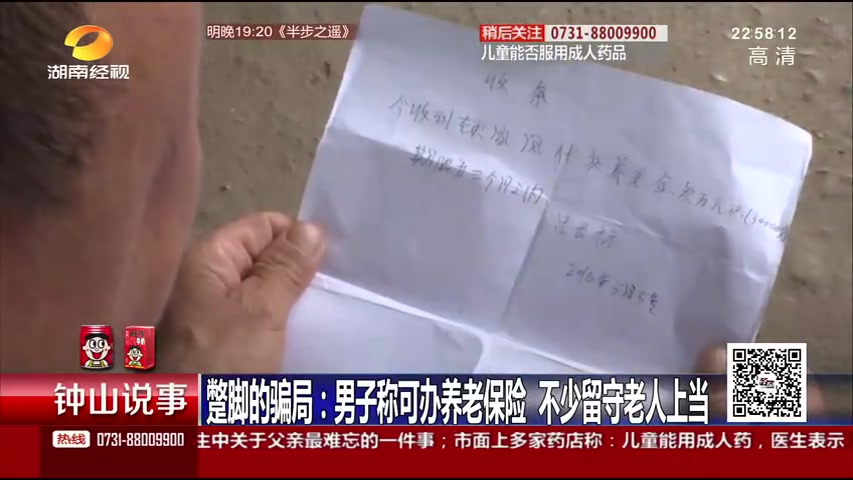 湖南经视
明晚19:20《半步之遥》
稍后关注 0731-88009900
儿童能否服用成人药品
22:58:12
高清
收条
今收到
养老金
三个月之内
钟山说事
蹩脚的骗局：男子称可办养老保险 不少留守老人上当
热线 0731-88009900
生中关于父亲最难忘的一件事；市面上多家药店称：儿童能用成人药，医生表示